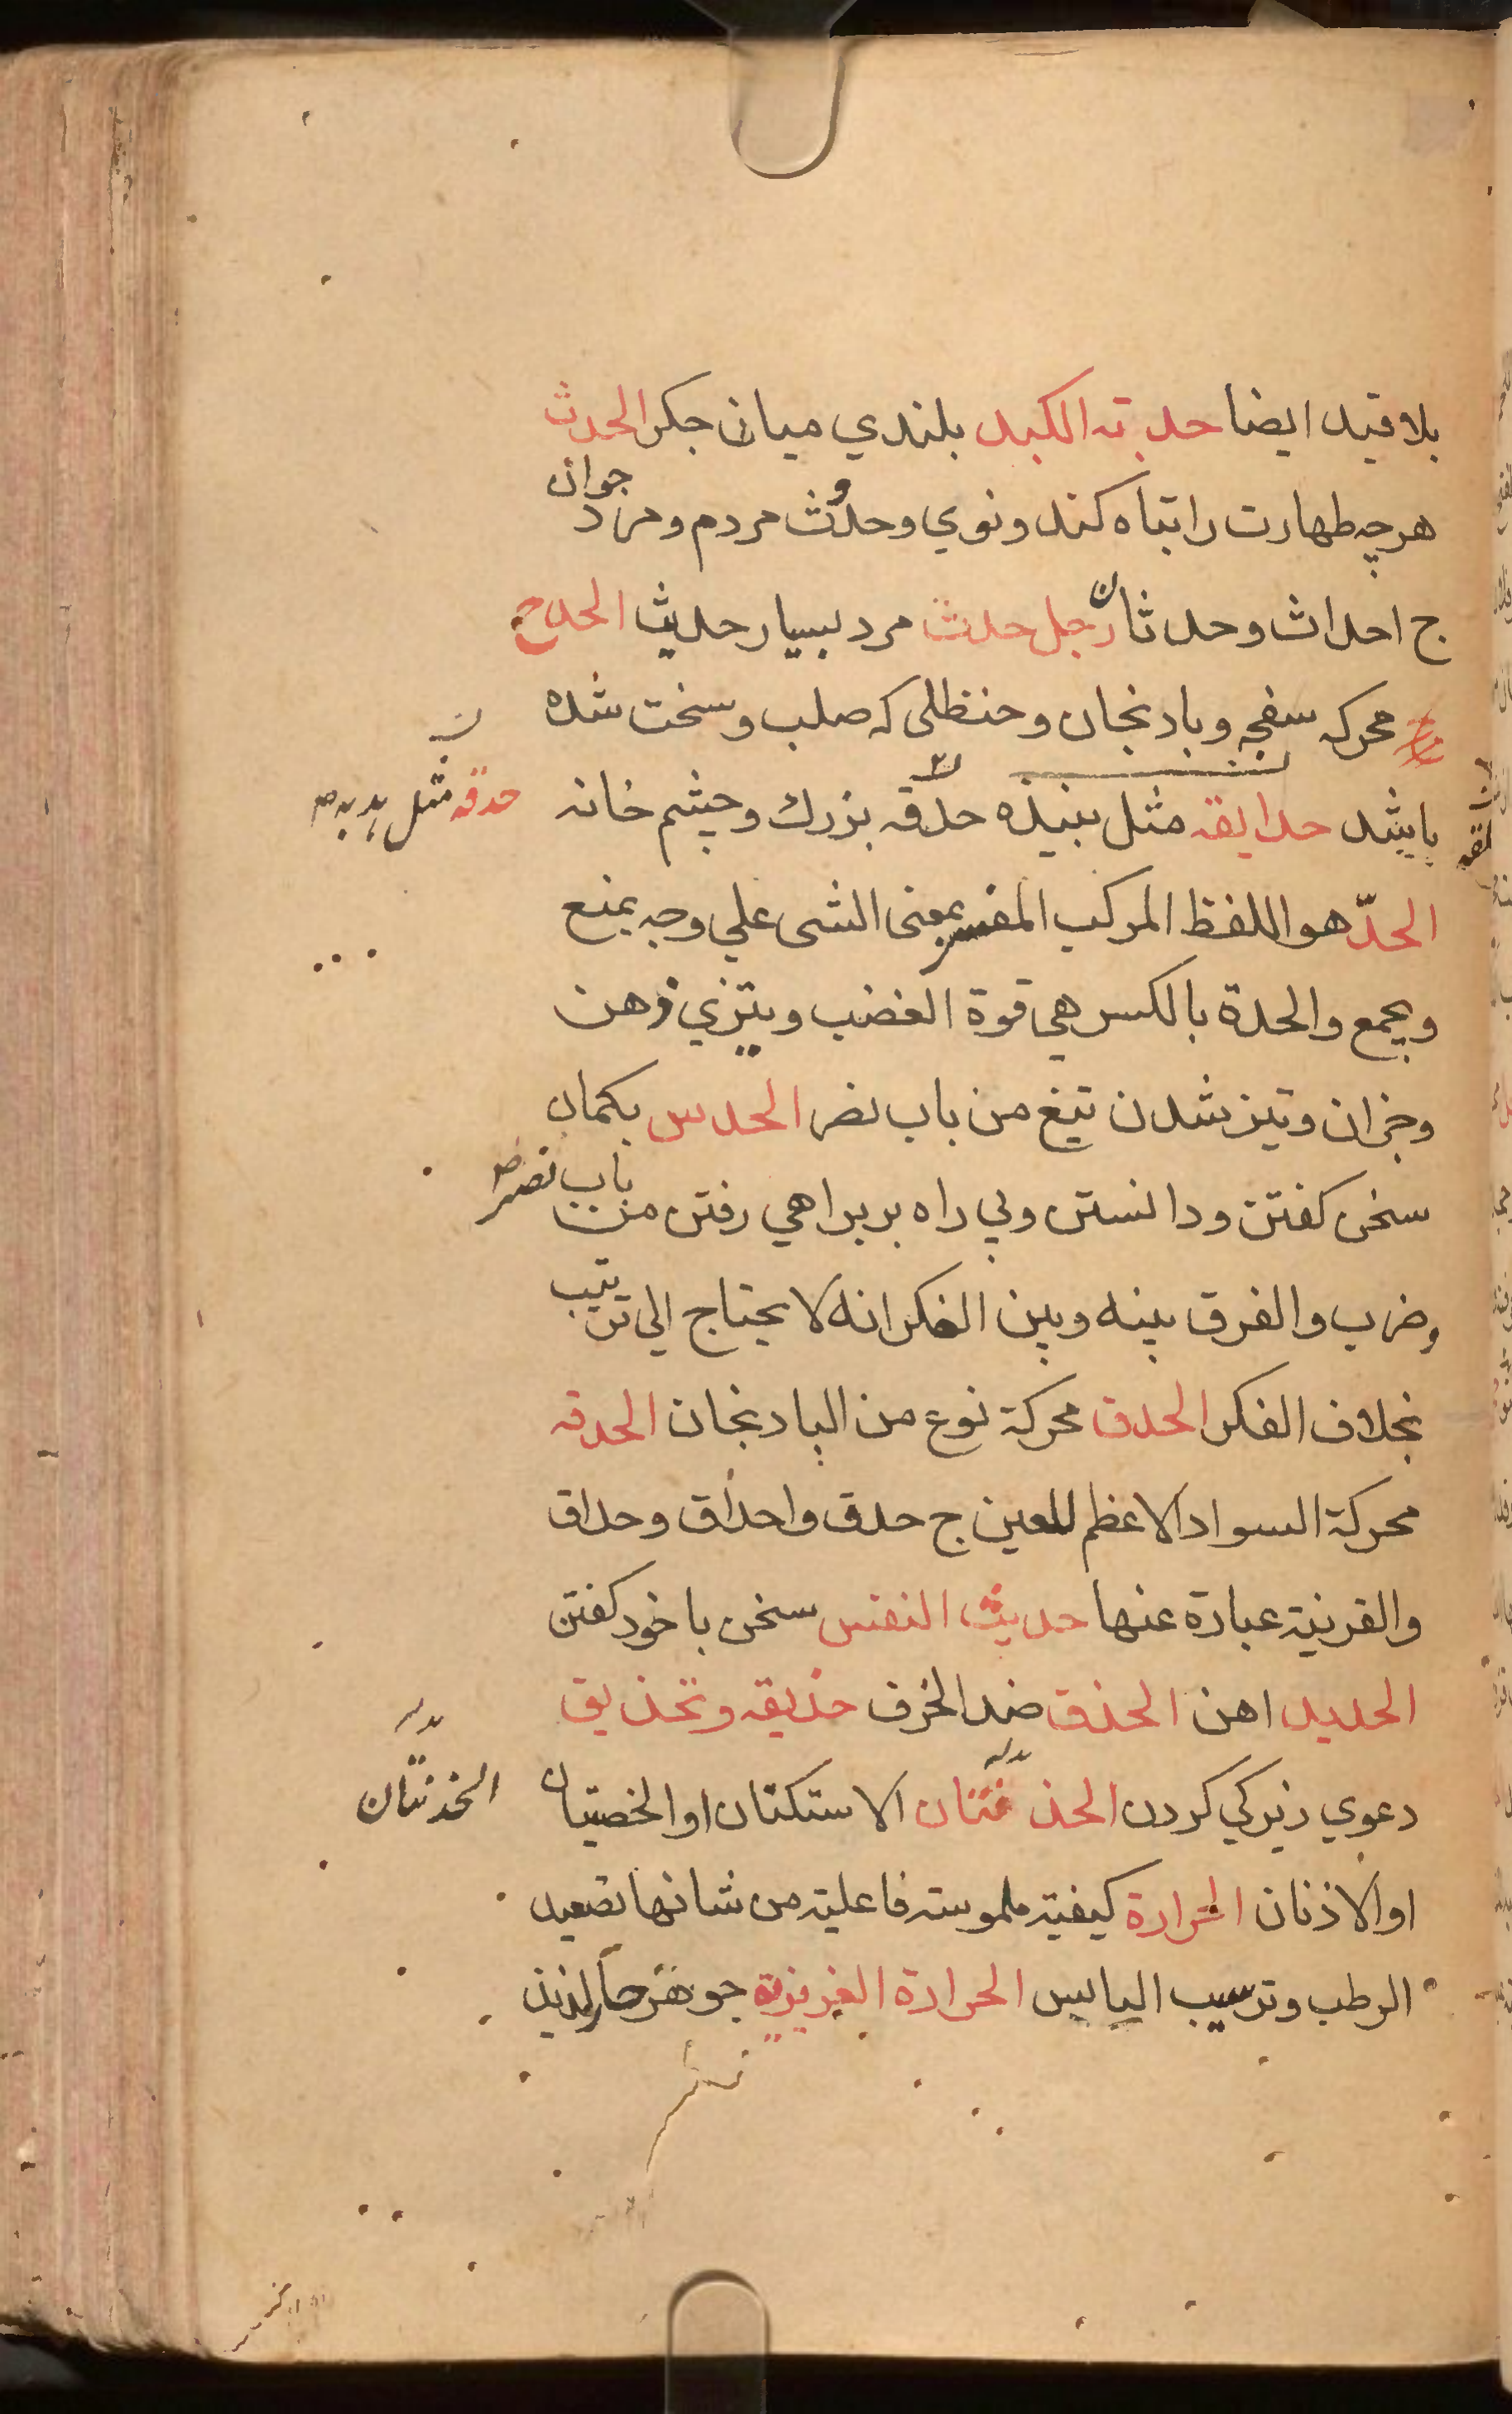 بلا قيد ايضا حدبته الكبد بلندي ميان جكر الحدث
هرچه طهارت را تباه كند و نوي و حدُث مردم و مرد جوان
ج احداث و حدثان رجل حدث مرد بسيار حديث الحدج
محركه سفجه و بادنجان و حنظلى كه صلب و سخت شده
باشد حدايقه مثل بنيذه حدقه بزرك و چشم خانه
حدقه مثل
الحدّ هو اللفظ المركب المفسر بمعنى الشى علي وجه يمنع
و يجمع والحدة بالكسر هي قوة الغضب و بيتزي ذهن
و جزان و تيز شدن تيغ من باب نصر الحدس بكمان
سخن كفتن و دانستن و بي راه بر براهي رفتن من باب نصر
و ضرب والفرق بينه و بين الفكر انه لا يحتاج الى ترتيب
بخلاف الفكر الحدق محركة نوع من البادنجان الحدقه
محركة السواد الاعظم للعين ج حدق و احداق و حداق
والقرنية عبارة عنها حديث النفس سخن با خود كفتن
الحديد اهن الحذق ضد الخرف حذيقه و تحذيق
دعوي زيركي كردن الحذنتان الاستكتان او الخصيتان
الحذنتان
او الاذنان الحرارة كيفية ملموسته فاعليته من شانها تصعيد
الرطب و ترسيب اليابس الحرارة الغريزية جوهر حار لذيذ